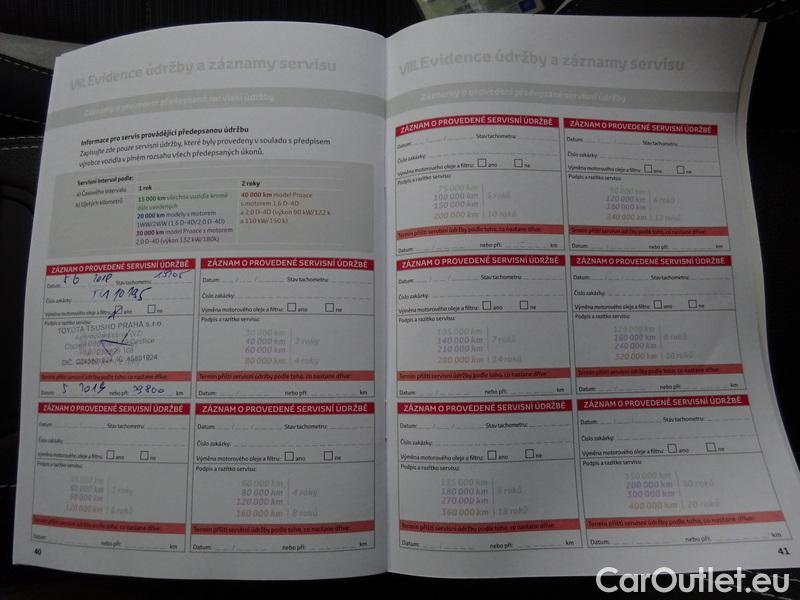 VIII. Evidence údržby a záznamy servisu
Záznamy o provedení předepsané servisní údržby
Informace pro servis provádějící předepsanou údržbu
Zapisujte zde pouze servisní údržby, které byly provedeny v souladu s předpisem
výrobce vozidla v plném rozsahu všech předepsaných úkonů.
Servisní interval podle:
a) Časového intervalu
b) Ujetých kilometrů
1 rok
15 000 km všechna vozidla kromě
dále uvedených
20 000 km modely s motorem
1WW/2WW (1,6 D-4D/2,0 D-4D)
30 000 km model Proace s motorem
2,0 D-4D (výkon 132 kW/180k)
2 roky
40 000 km model Proace
s motorem 1,6 D-4D
a 2,0 D-4D (výkon 90 kW/122 k
a 110 kW/150 k)
ZÁZNAM O PROVEDENÉ SERVISNÍ ÚDRŽBĚ
Datum: 2018 Stav tachometru:
Číslo zakázky:
Výměna motorového oleje a filtru: ano ne
Podpis a razítko servisu:
TOYOTA TSUSHO PRAHA s.r.o.
Termín příští servisní údržby podle toho, co nastane dříve:
Datum: 5 2019 nebo při: km
ZÁZNAM O PROVEDENÉ SERVISNÍ ÚDRŽBĚ
Datum: Stav tachometru:
Číslo zakázky:
Výměna motorového oleje a filtru: ano ne
Podpis a razítko servisu:
30 000 km
40 000 km
60 000 km
80 000 km
2 roky
4 roky
Termín příští servisní údržby podle toho, co nastane dříve:
Datum: nebo při: km
ZÁZNAM O PROVEDENÉ SERVISNÍ ÚDRŽBĚ
Datum: Stav tachometru:
Číslo zakázky:
Výměna motorového oleje a filtru: ano ne
Podpis a razítko servisu:
45 000 km
60 000 km
90 000 km
120 000 km
3 roky
6 roků
Termín příští servisní údržby podle toho, co nastane dříve:
Datum: nebo při: km
ZÁZNAM O PROVEDENÉ SERVISNÍ ÚDRŽBĚ
Datum: Stav tachometru:
Číslo zakázky:
Výměna motorového oleje a filtru: ano ne
Podpis a razítko servisu:
60 000 km
80 000 km
120 000 km
160 000 km
4 roky
8 roků
Termín příští servisní údržby podle toho, co nastane dříve:
Datum: nebo při: km
40
VIII. Evidence údržby a záznamy servisu
Záznamy o provedení předepsané servisní údržby
ZÁZNAM O PROVEDENÉ SERVISNÍ ÚDRŽBĚ
Datum: Stav tachometru:
Číslo zakázky:
Výměna motorového oleje a filtru: ano ne
Podpis a razítko servisu:
75 000 km
100 000 km
150 000 km
200 000 km
5 roků
10 roků
Termín příští servisní údržby podle toho, co nastane dříve:
Datum: nebo při: km
ZÁZNAM O PROVEDENÉ SERVISNÍ ÚDRŽBĚ
Datum: Stav tachometru:
Číslo zakázky:
Výměna motorového oleje a filtru: ano ne
Podpis a razítko servisu:
90 000 km
120 000 km
180 000 km
240 000 km
6 roků
12 roků
Termín příští servisní údržby podle toho, co nastane dříve:
Datum: nebo při: km
ZÁZNAM O PROVEDENÉ SERVISNÍ ÚDRŽBĚ
Datum: Stav tachometru:
Číslo zakázky:
Výměna motorového oleje a filtru: ano ne
Podpis a razítko servisu:
105 000 km
140 000 km
210 000 km
280 000 km
7 roků
14 roků
Termín příští servisní údržby podle toho, co nastane dříve:
Datum: nebo při: km
ZÁZNAM O PROVEDENÉ SERVISNÍ ÚDRŽBĚ
Datum: Stav tachometru:
Číslo zakázky:
Výměna motorového oleje a filtru: ano ne
Podpis a razítko servisu:
120 000 km
160 000 km
240 000 km
320 000 km
8 roků
16 roků
Termín příští servisní údržby podle toho, co nastane dříve:
Datum: nebo při: km
ZÁZNAM O PROVEDENÉ SERVISNÍ ÚDRŽBĚ
Datum: Stav tachometru:
Číslo zakázky:
Výměna motorového oleje a filtru: ano ne
Podpis a razítko servisu:
135 000 km
180 000 km
270 000 km
360 000 km
9 roků
18 roků
Termín příští servisní údržby podle toho, co nastane dříve:
Datum: nebo při: km
ZÁZNAM O PROVEDENÉ SERVISNÍ ÚDRŽBĚ
Datum: Stav tachometru:
Číslo zakázky:
Výměna motorového oleje a filtru: ano ne
Podpis a razítko servisu:
150 000 km
200 000 km
300 000 km
400 000 km
10 roků
20 roků
Termín příští servisní údržby podle toho, co nastane dříve:
Datum: nebo při: km
41
CarOutlet.eu